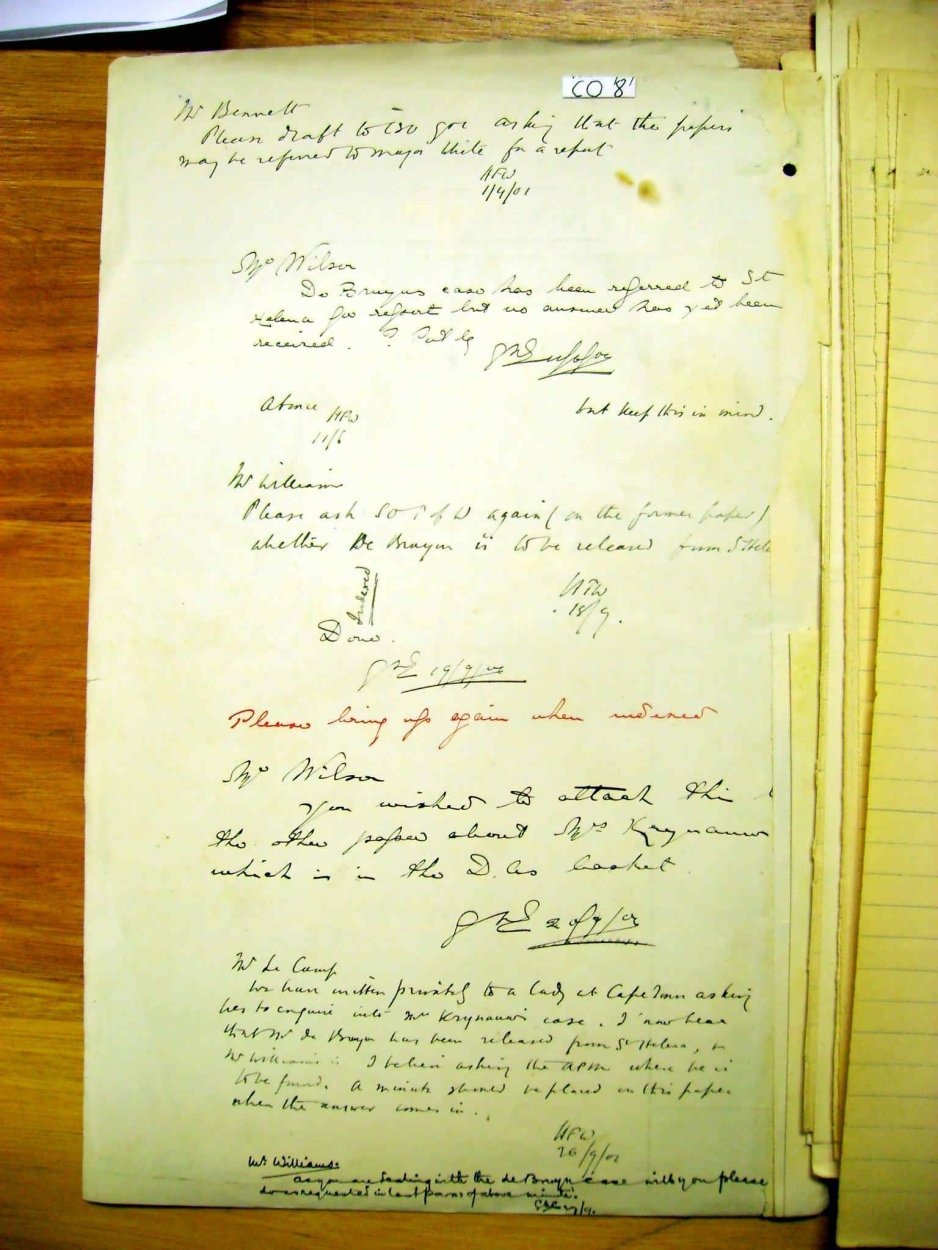 CO '8'
Mr Bennett
Please draft to goc asking that the papers
may be referred to Major White for a report
HFW
1/4/01
Mr Wilson
De Bruyns case has been referred to St
Helena for report but no answer has yet been
received. ? Put by
Above HFW
11/6
but keep this in mind.
Mr Williams
Please ask SO P of W again (on the former paper)
whether De Bruyn is to be released from S Hele
Indexed
HFW
18/9.
Done.
19/9/02
Please bring up again when indexed
Mr Wilson
You wished to attach this
the other paper about Mrs Krynauw
which is in the D. As basket.
Mr Le Camp
We have written privately to a lady at Cape Town asking
her to enquire into Mrs Krynauw's case. I now hear
that Mr de Bruyn has been released from St Helena, &
Mr Williams is I believe asking the APM where he is
to be found. A minute should be placed on this paper
when the answer comes in.
HFW
26/9/02
Mr Williams:
as you are dealing with the de Bruyn case will you please
do as requested in last para of above minute.